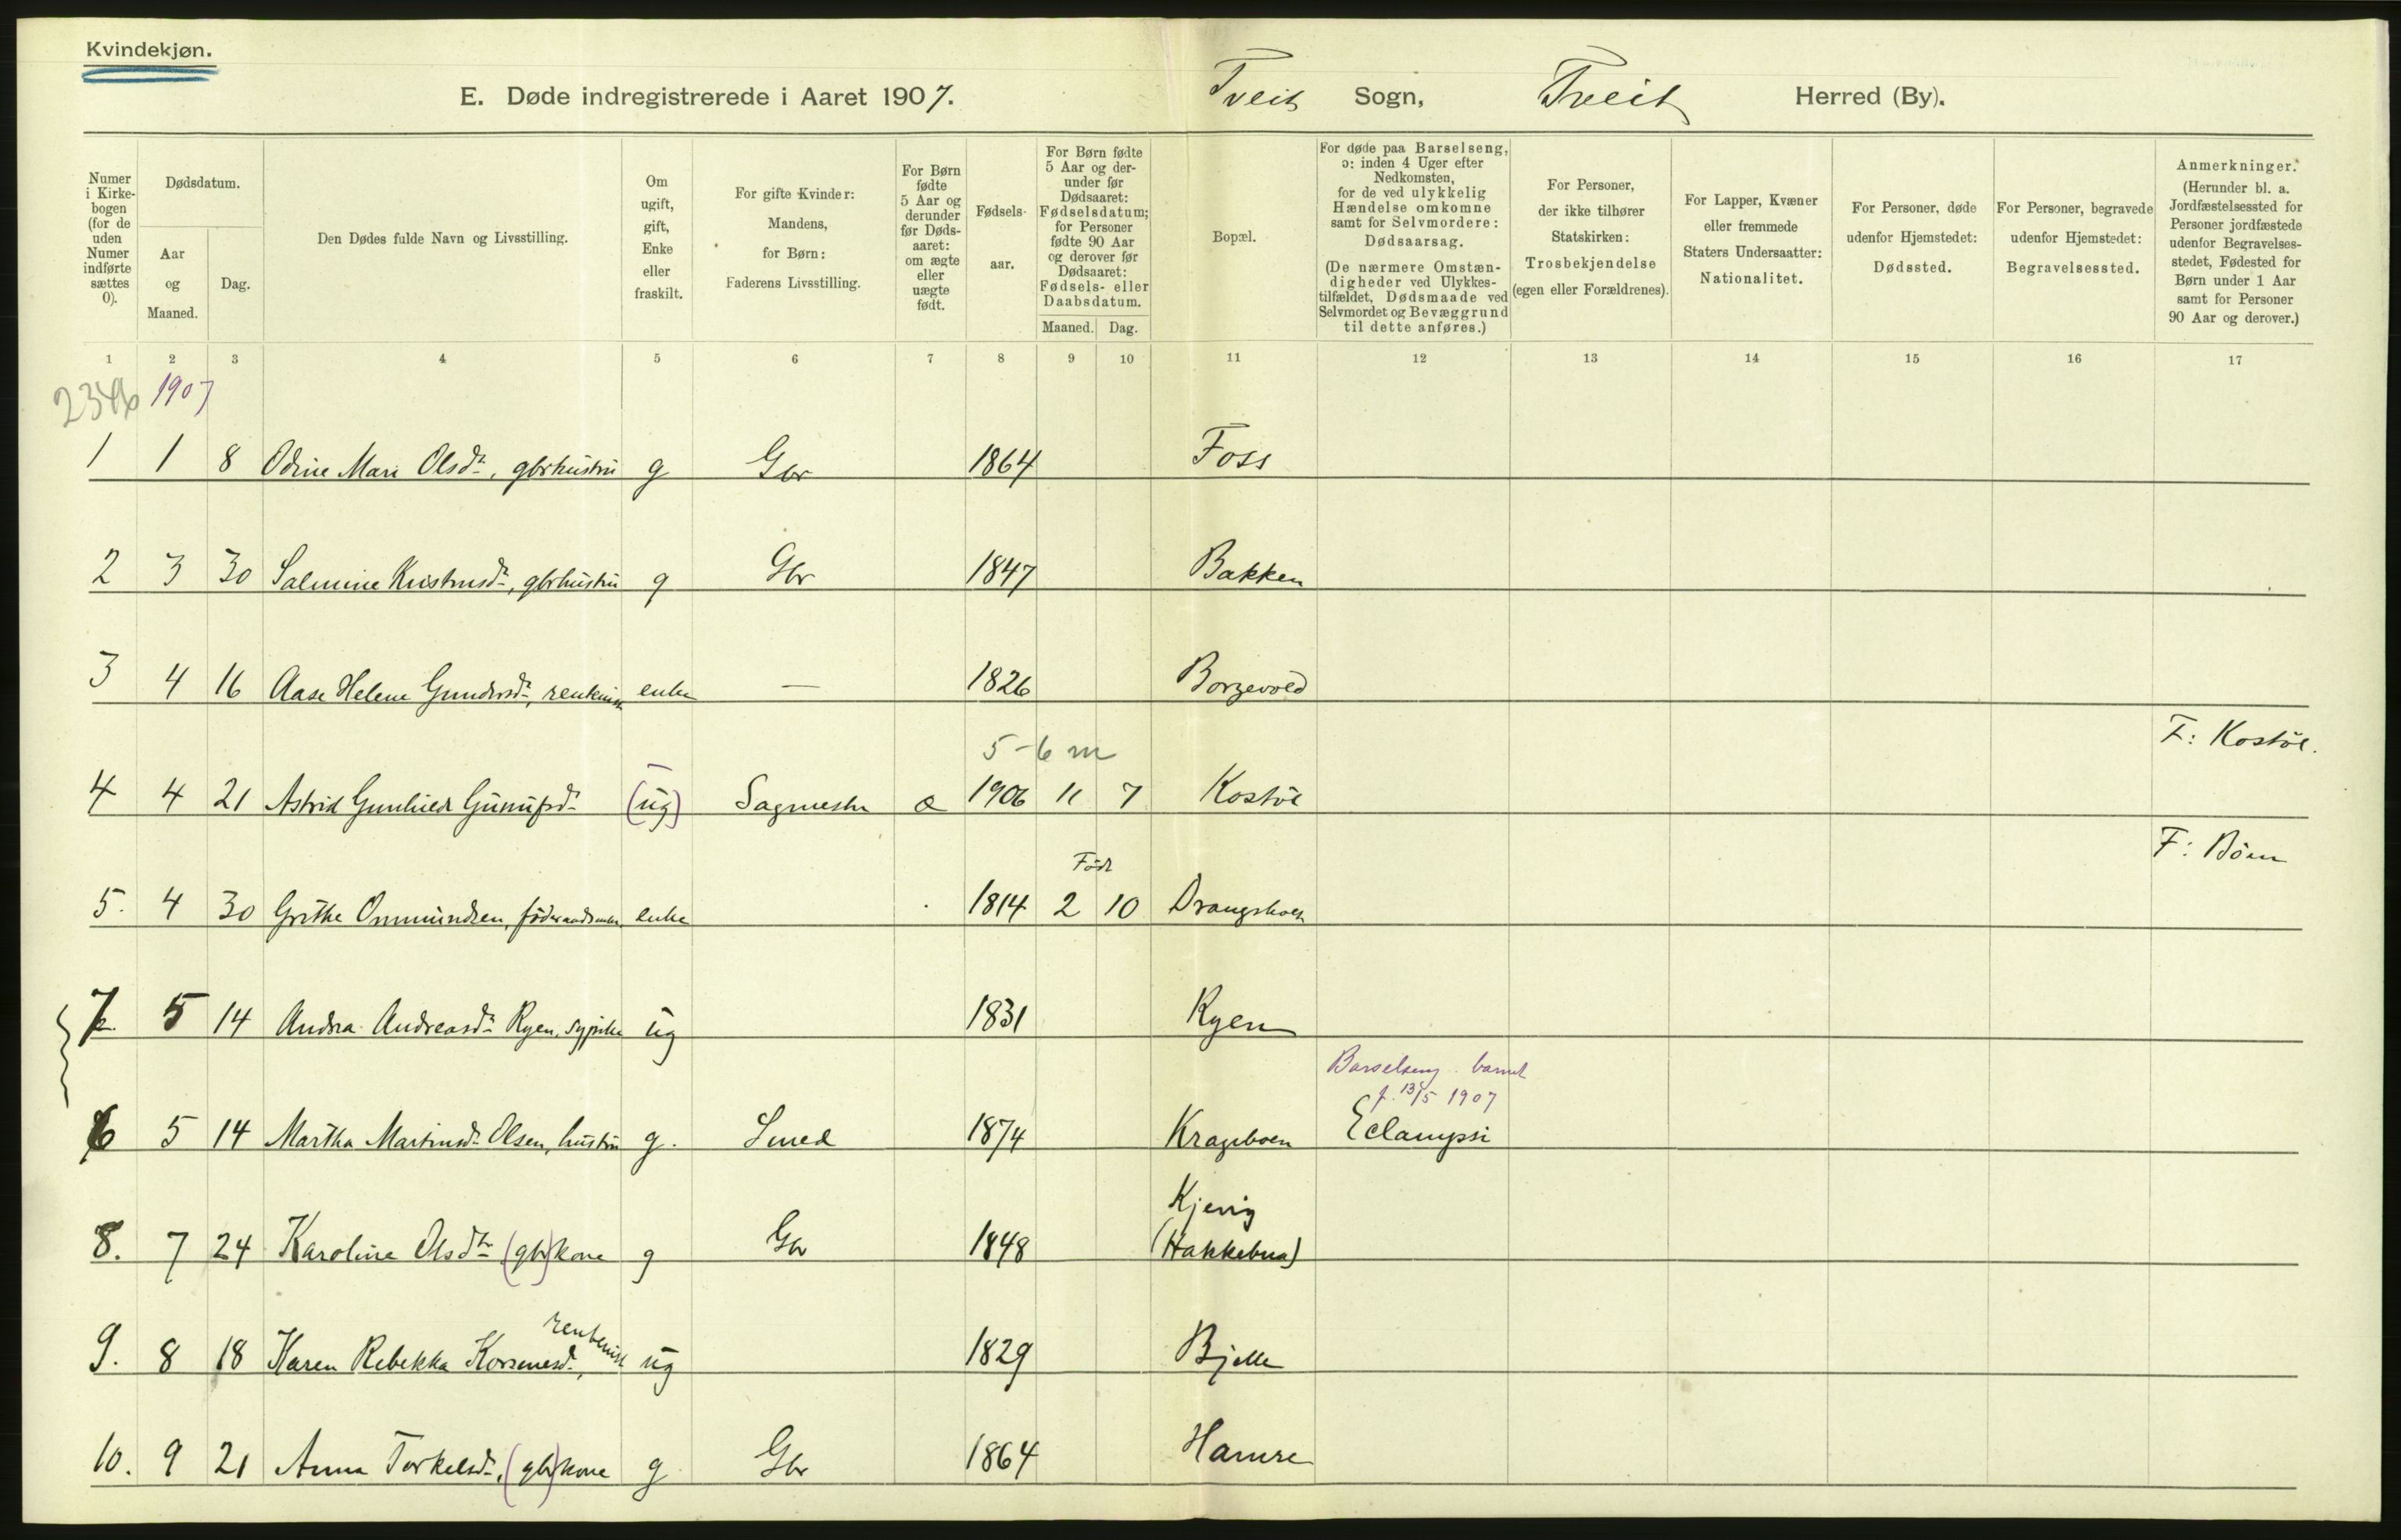 Kvindekjøn.
E. Døde indregistrerede i Aaret 1907. Tveit Sogn, Tveit Herred (By).
Numer i Kirkebogen (for de uden Numer indførte sættes 0).
Dødsdatum.
Aar og Maaned.
Dag.
Den Dødes fulde Navn og Livsstilling.
Om ugift, gift, Enke eller fraskilt.
For gifte Kvinder: Mandens, for Børn: Faderens Livsstilling.
For Børn fødte 5 Aar og derunder før Dødsaaret: om ægte eller uægte født.
Fødselsaar.
For Børn fødte 5 Aar og derunder før Dødsaaret: Fødselsdatum; for Personer fødte 90 Aar og derover før Dødsaaret: Fødsels- eller Daabsdatum.
Maaned. Dag.
Bopæl.
For døde paa Barselseng, ɔ: inden 4 Uger efter Nedkomsten, for de ved ulykkelig Hændelse omkomne samt for Selvmordere: Dødsaarsag.
(De nærmere Omstændigheder ved Ulykkestilfældet, Dødsmaade ved Selvmordet og Bevæggrund til dette anføres.)
For Personer, der ikke tilhører Statskirken: Trosbekjendelse (egen eller Forældrenes).
For Lapper, Kvæner eller fremmede Staters Undersaatter: Nationalitet.
For Personer, døde udenfor Hjemstedet: Dødssted.
For Personer, begravede udenfor Hjemstedet: Begravelsessted.
Anmerkninger. (Herunder bl. a. Jordfæstelsessted for Personer jordfæstede udenfor Begravelsesstedet, Fødested for Børn under 1 Aar samt for Personer 90 Aar og derover.)
1 2 3 4 5 6 7 8 9 10 11 12 13 14 15 16 17
1907
1 1 8 Odine Mari Olsdr, gbrhustru g Gbr 1864 Foss
2 3 30 Salmine Kristensdr, gbrhustru g Gbr 1847 Bakken
3 4 16 Aase Helene Gundersdr, rentenist enke — 1826
5-6 m F: Kostöl.
4 4 21 Astrid Gunhild (ug) Sagmester æ 1906 11 7 Kostöl
Född F: Böen
5. 4 30 Grethe Ommundsen, föderaadsenke enke 1814 2 10 Drangsholt
7. 5 14 Andrea Andreasdr Ryen, sypike ug 1831 Ryen
Barselseng. barnet
f. 13/5 1907
6 5 14 Martha Martinsdr Olsen, hustru g. Smed 1874 Krageboen Eclampsi
Kjevig
8. 7 24 Karoline Olsdtr (gbr)kone g Gbr 1848 (Hakkebua)
rentenist
9. 8 18 Karen Rebekka ug 1829 Bjelle
10. 9 21 Anna Torkelsdr, (gbr)kone g Gbr 1864 Hamre